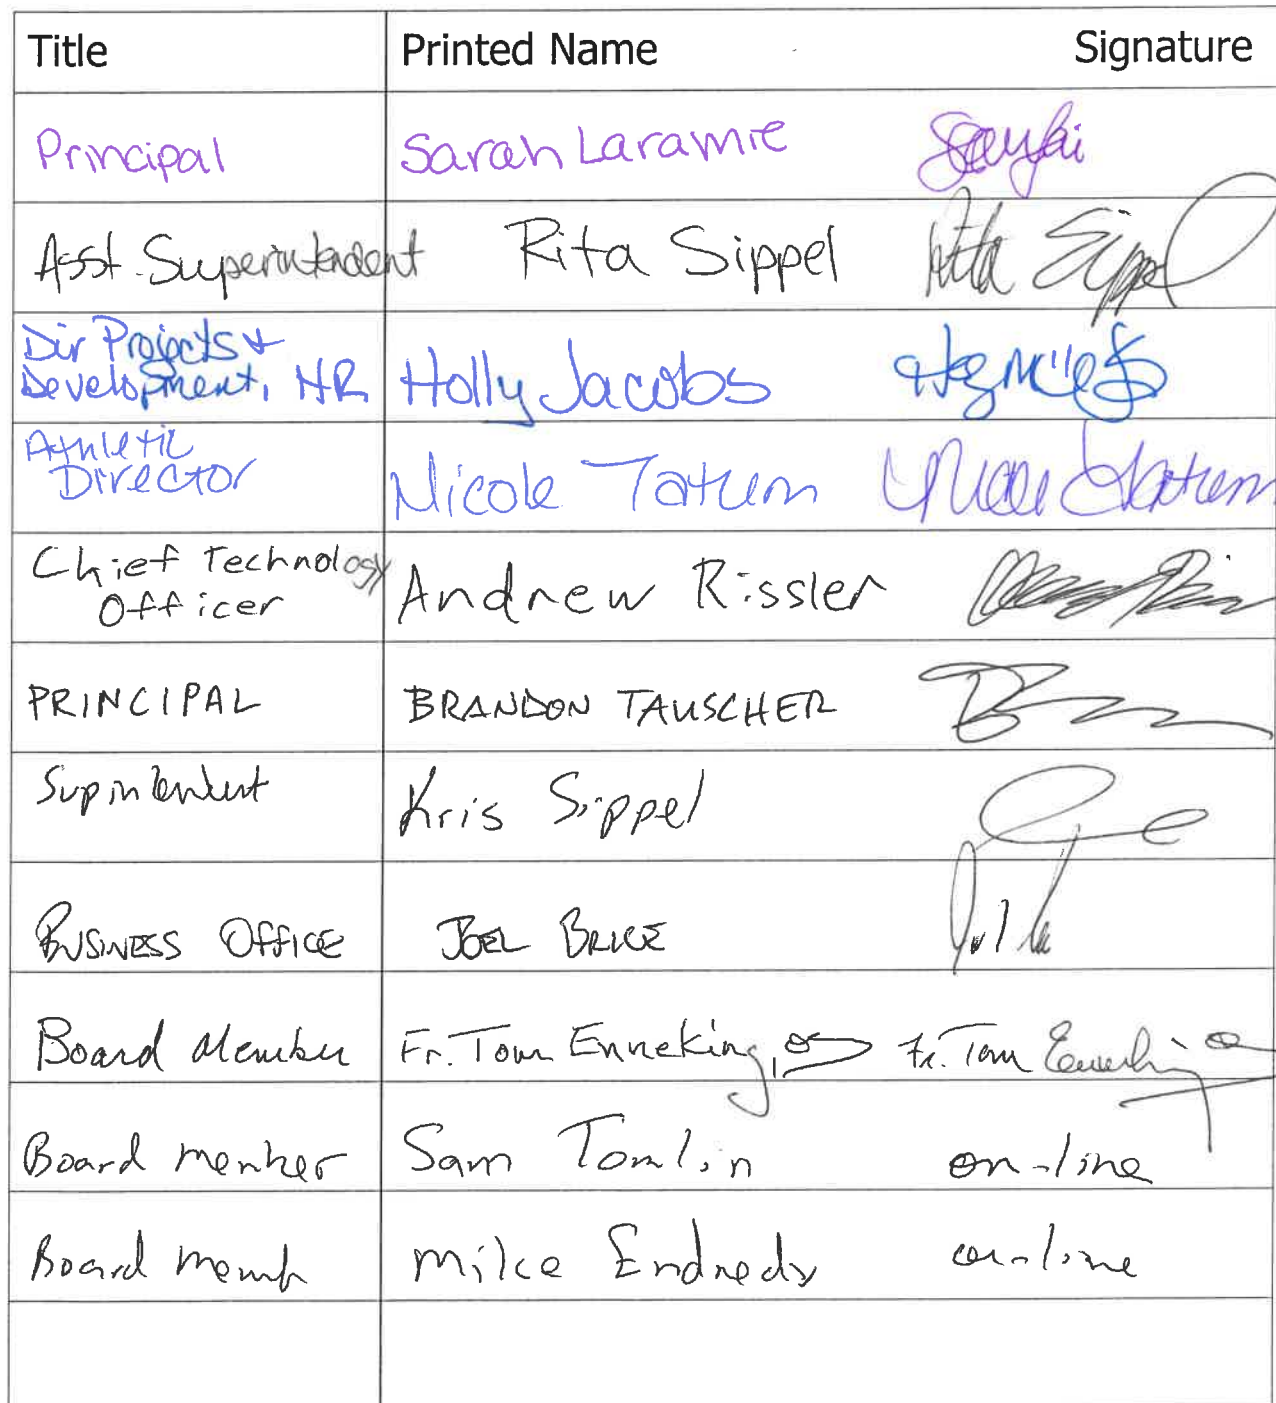 Title Printed Name Signature
Principal Sarah Laramie
Asst. Superintendent Rita Sippel Rita Sippel
Dir Projects &
Development, HR Holly Jacobs
Athletic
Director Nicole Tatum Nicole Tatum
Chief Technology
Officer Andrew Rissler
PRINCIPAL BRANDON TAUSCHER
Kris Sippel
BUSINESS OFFICE JOEL BRUCE
Board Member Fr. Tom Enneking, Fr. Tom Enneking
Board member Sam Tomlin on-line
Board Memb on-line